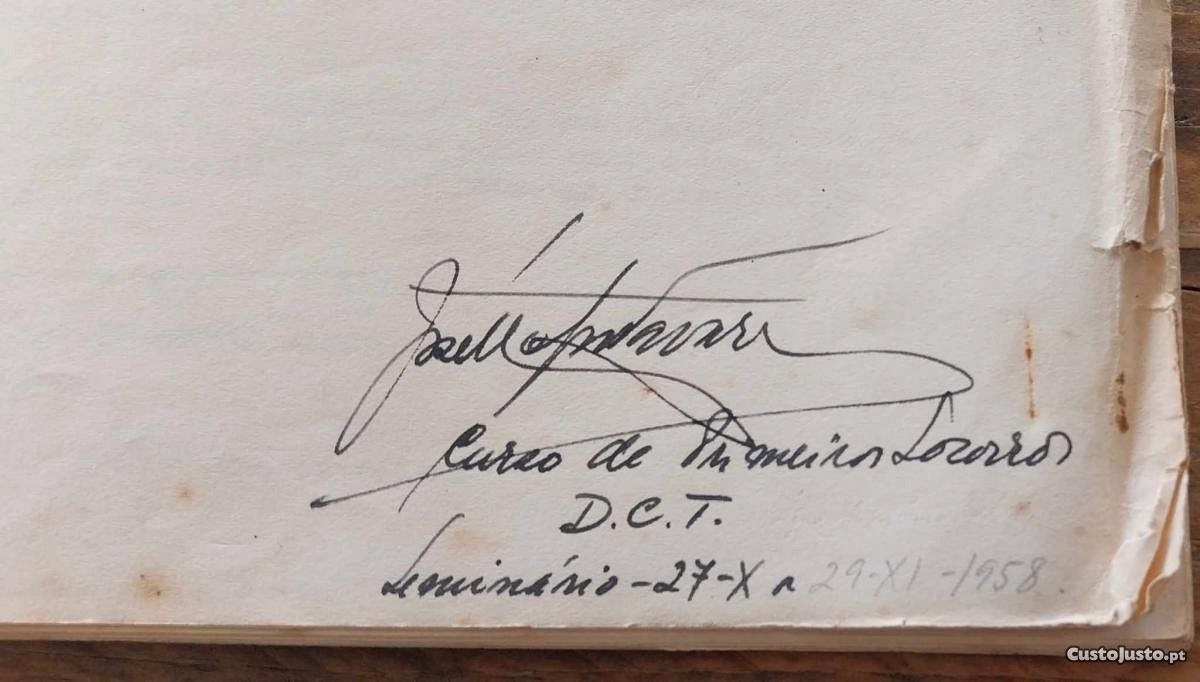 José
Curso de Primeiros Socorros
D.C.T.
Seminário - 27-X a 29-XI-1958.
CustoJusto.pt